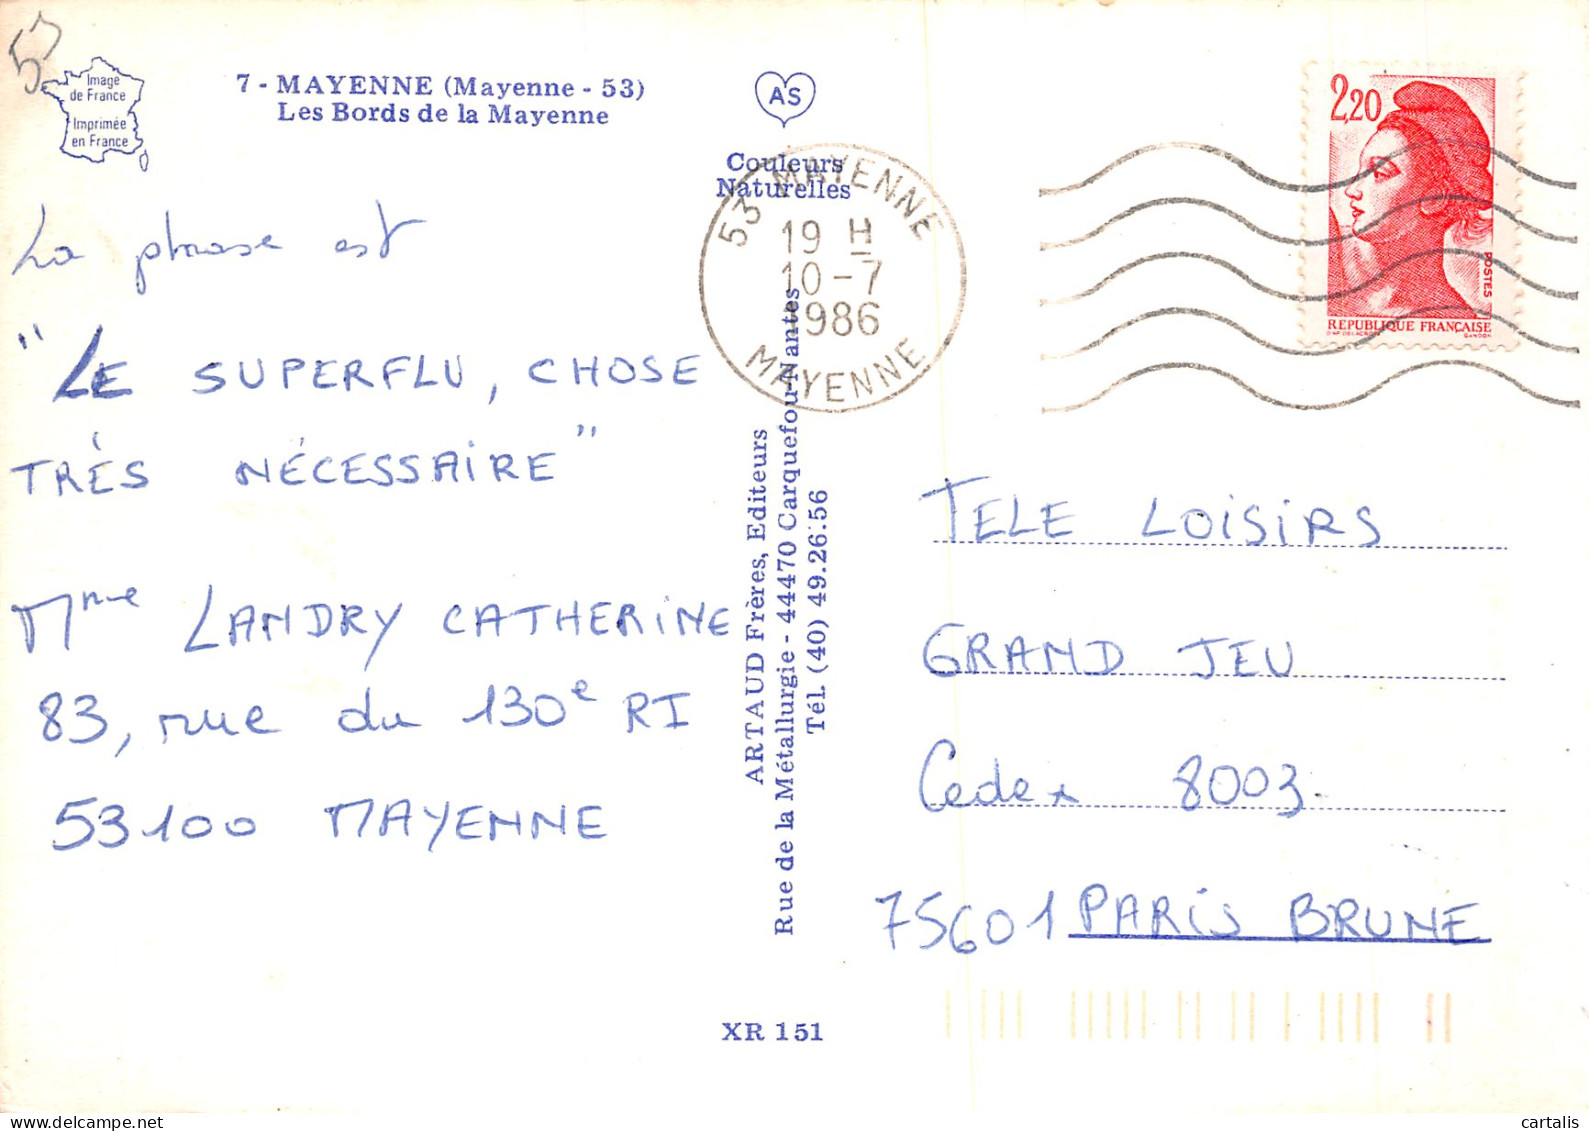 53
Image
de France
Imprimée
en France
7 - MAYENNE (Mayenne - 53)
Les Bords de la Mayenne
La phrase est
"LE SUPERFLU, CHOSE
TRÈS NÉCESSAIRE"
Mme LANDRY CATHERINE
83, rue du 130e RI
53100 MAYENNE
AS
Couleurs
Naturelles
53 MAYENNE
19 H
10-7
1986
MAYENNE
ARTAUD Frères, Editeurs
Rue de la Métallurgie - 44470 Carquefou-Nantes
Tél. (40) 49.26.56
XR 151
2,20
POSTES
REPUBLIQUE FRANÇAISE
D'AP. DELACROIX GANDON
TELE LOISIRS
GRAND JEU
Cedex 8003.
75601 PARIS BRUNE
cartalis